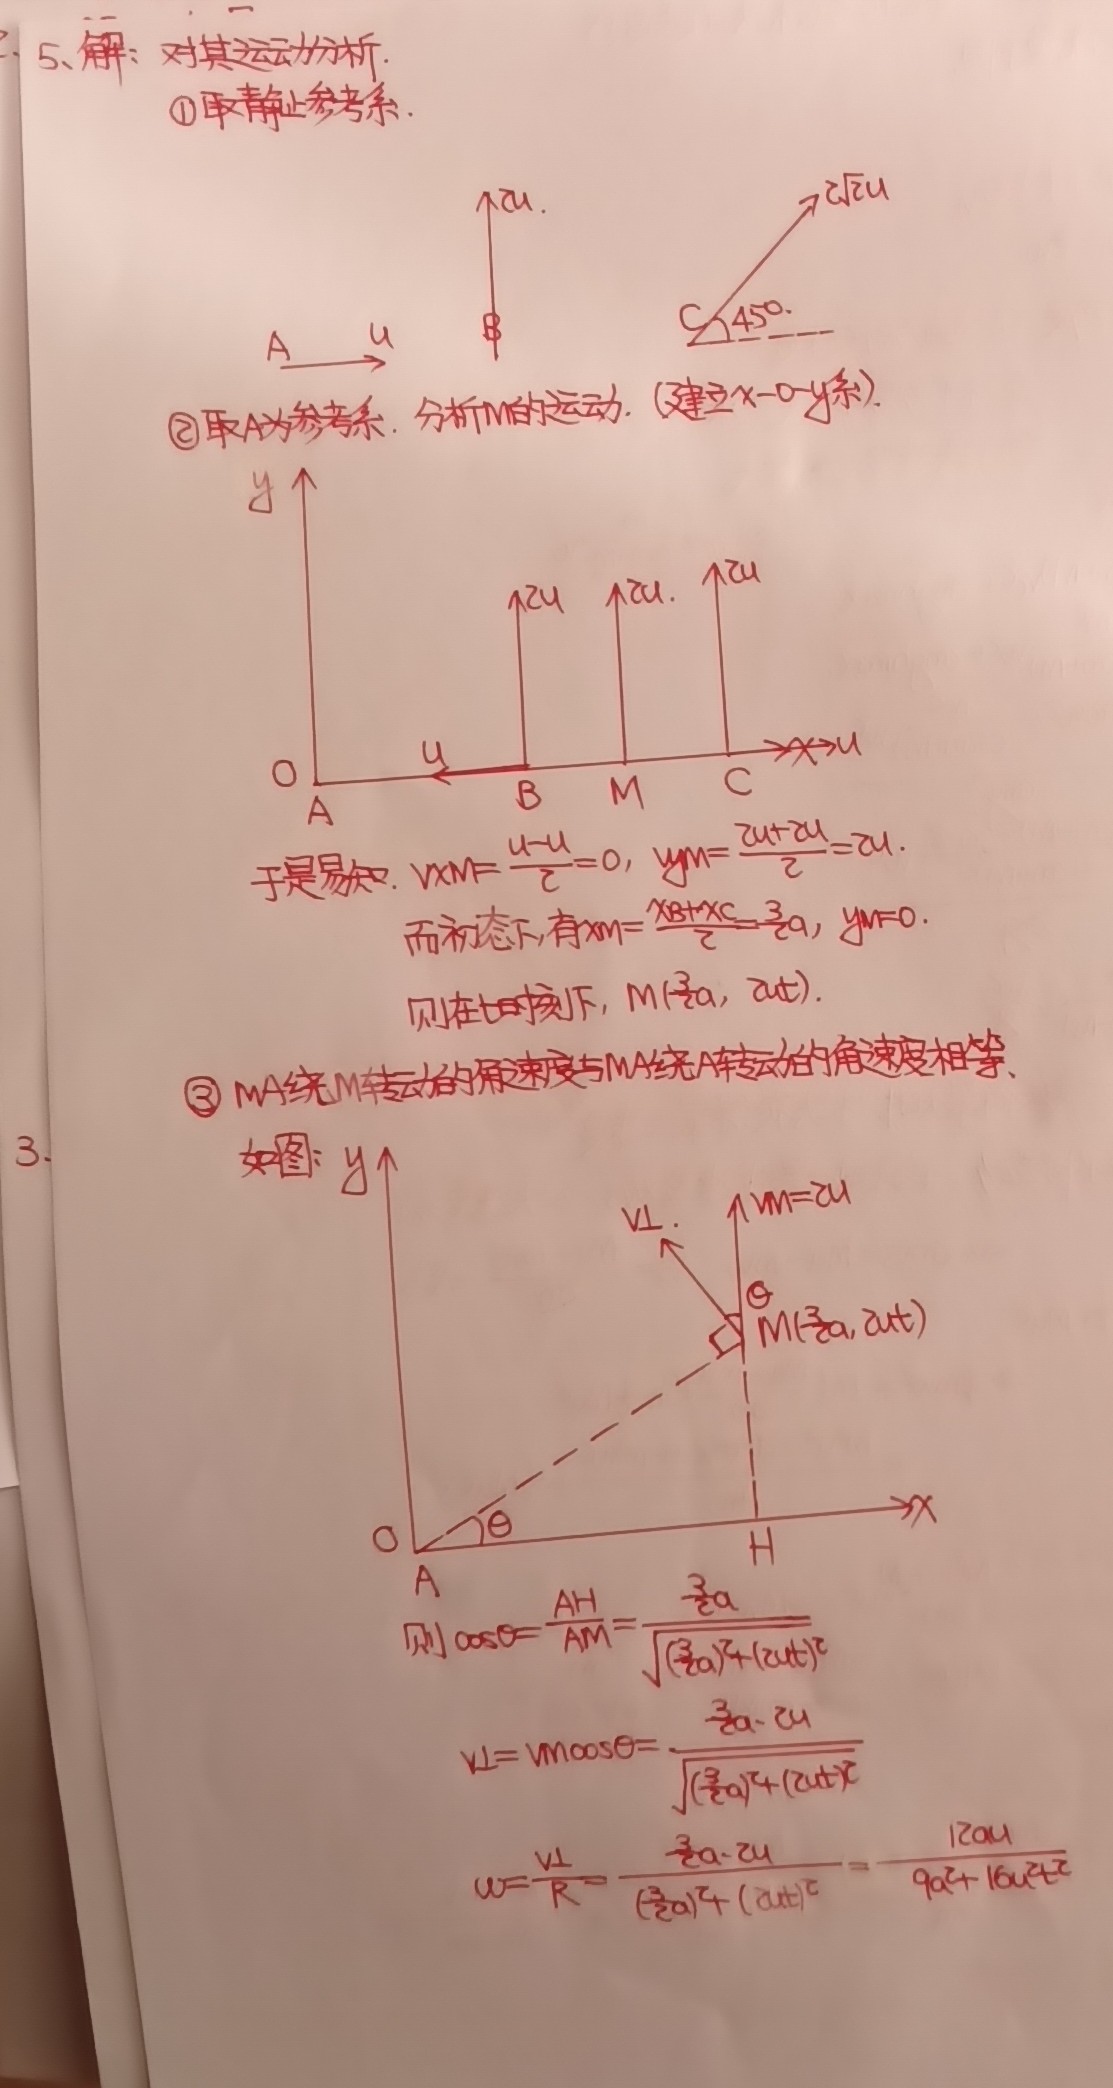 5、解: 对其运动分析.
①取静止参考系.
2u.
2√2u
A u B C 45°.
②取A为参考系. 分析M的运动. (建立x-o-y系).
y
2u 2u. 2u
O u x u
A B M C
于是易知. vxM=(u-u)/2=0, vyM=(2u+2u)/2=2u.
而初态下,有xM=(xB+xC)/2=3/2a, yM=0.
则在t时刻下, M(3/2a, 2ut).
③ MA绕M转动的角速度与MA绕A转动的角速度相等、
3.
如图: y
v⊥. vM=2u
θ
M(3/2a, 2ut)
O θ x
A H
则cosθ=AH/AM=(3/2a)/√((3/2a)²+(2ut)²)
v⊥=vMcosθ=(3/2a·2u)/√((3/2a)²+(2ut)²)
ω=v⊥/R=(3/2a·2u)/((3/2a)²+(2ut)²)=12au/(9a²+16u²t²)